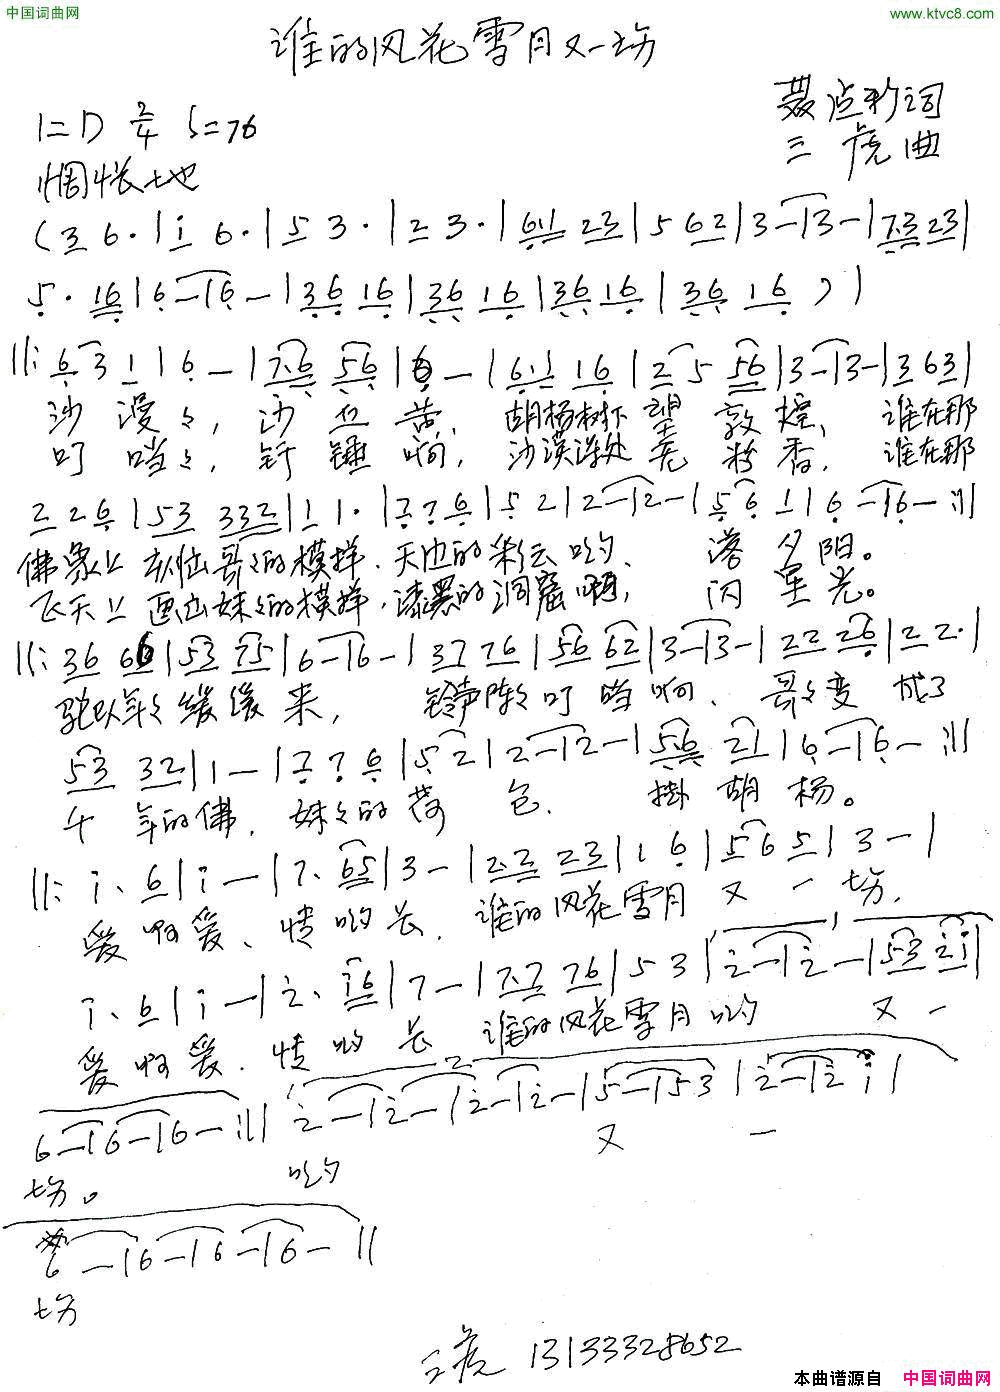 中国词曲网
www.ktvc8.com
谁的风花雪月又一场
1=D 2/4 ♩=76
聂 珍词
三 虎曲
惆怅地
(3 6·|i 6·|5 3·|2 3·|61 23|5 62|3-|3-|7·3 23|
5·16|6-|6-|36 16|36 16|36 16|36 16)|
||:6 3 1|6-|7·6 56|6-|6·1 16|2 5 56|3-|3-|3 63|
沙 漫々,沙 苦,胡杨树下 望 敦 煌,谁在那
叮 当々,钎 锤 响,沙漠深处 粉 香,谁在那
2 2 6|53 332|1 1·|7 7 6|5 2|2-|2-|5 6 1|6-|6-:||
佛象上 哥々的模样.天边的彩云哟、落 夕 阳。
飞天上 画出妹々的模样,漆黑的洞窟啊,闪 星 光。
||:36 66|53 75|6-|6-|37 76|56 62|3-|3-|22 26|22·|
驼队年々缓缓 来,铃声阵々叮 当 响、哥々变 成了
53 32|1-|7 7 6|5 2|2-|2-|5·6 21|6-|6-:||
千 年的佛,妹々的荷 包.掛 胡 杨。
||:i·6|i-|7·65|3-|2·2 23|1 6|5 6 5|3-|
爱 啊爱、情 哟长.谁的风花雪月 又 一 场,
i·6|i-|2·i6|7-|7·7 76|5 3|2-|2-|53 2i|
爱 啊爱.情 哟 长 谁的风花雪月 哟 又 一
6-|6-|6-:|| 2-|2-|2-|2-|5-|53|2-|2 i|
又 一
场。 哟
6-|6-|6-|6-||
场
三虎 13133328652
本曲谱源自 中国词曲网